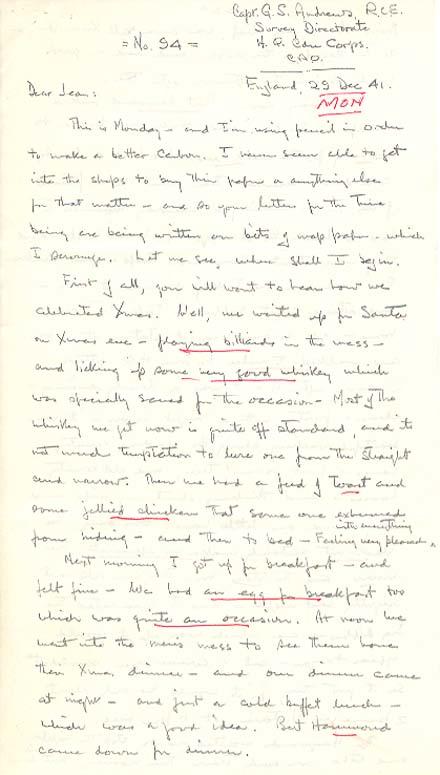 Capt. G. S. Andrews, R.C.E.
Survey Directorate
= No. 94 =
H. Q. Cdn Corps.
C.A.O.
England, 29 Dec 41.
MON
Dear Jean:
This is Monday - and I'm using pencil in order
to make a better Carbon. I never seem able to get
into the shops to buy thin paper or anything else
for that matter - and so your letters for the time
being are being written on bits of map paper - which
I scrounge. Let me see, where shall I begin.
First of all, you will want to hear how we
celebrated Xmas. Well, we waited up for Santa
on Xmas eve - playing billiards in the mess -
and licking up some very good whiskey which
was specially saved for the occasion - Most of the
whiskey we get now is quite off standard, and it's
not much temptation to lure one from the straight
and narrow. Then we had a feed of toast and
some jellied chicken that some one exhumed
from hiding - and then to bed - Feeling very pleased
with everything
Next morning I got up for breakfast - and
felt fine - We had an egg for breakfast too
which was quite an occasion. At noon we
went into the men's mess to see them have
their Xmas dinner - and our dinner came
at night - and just a cold buffet lunch -
which was a good idea. Bert Hammond
came down for dinner.